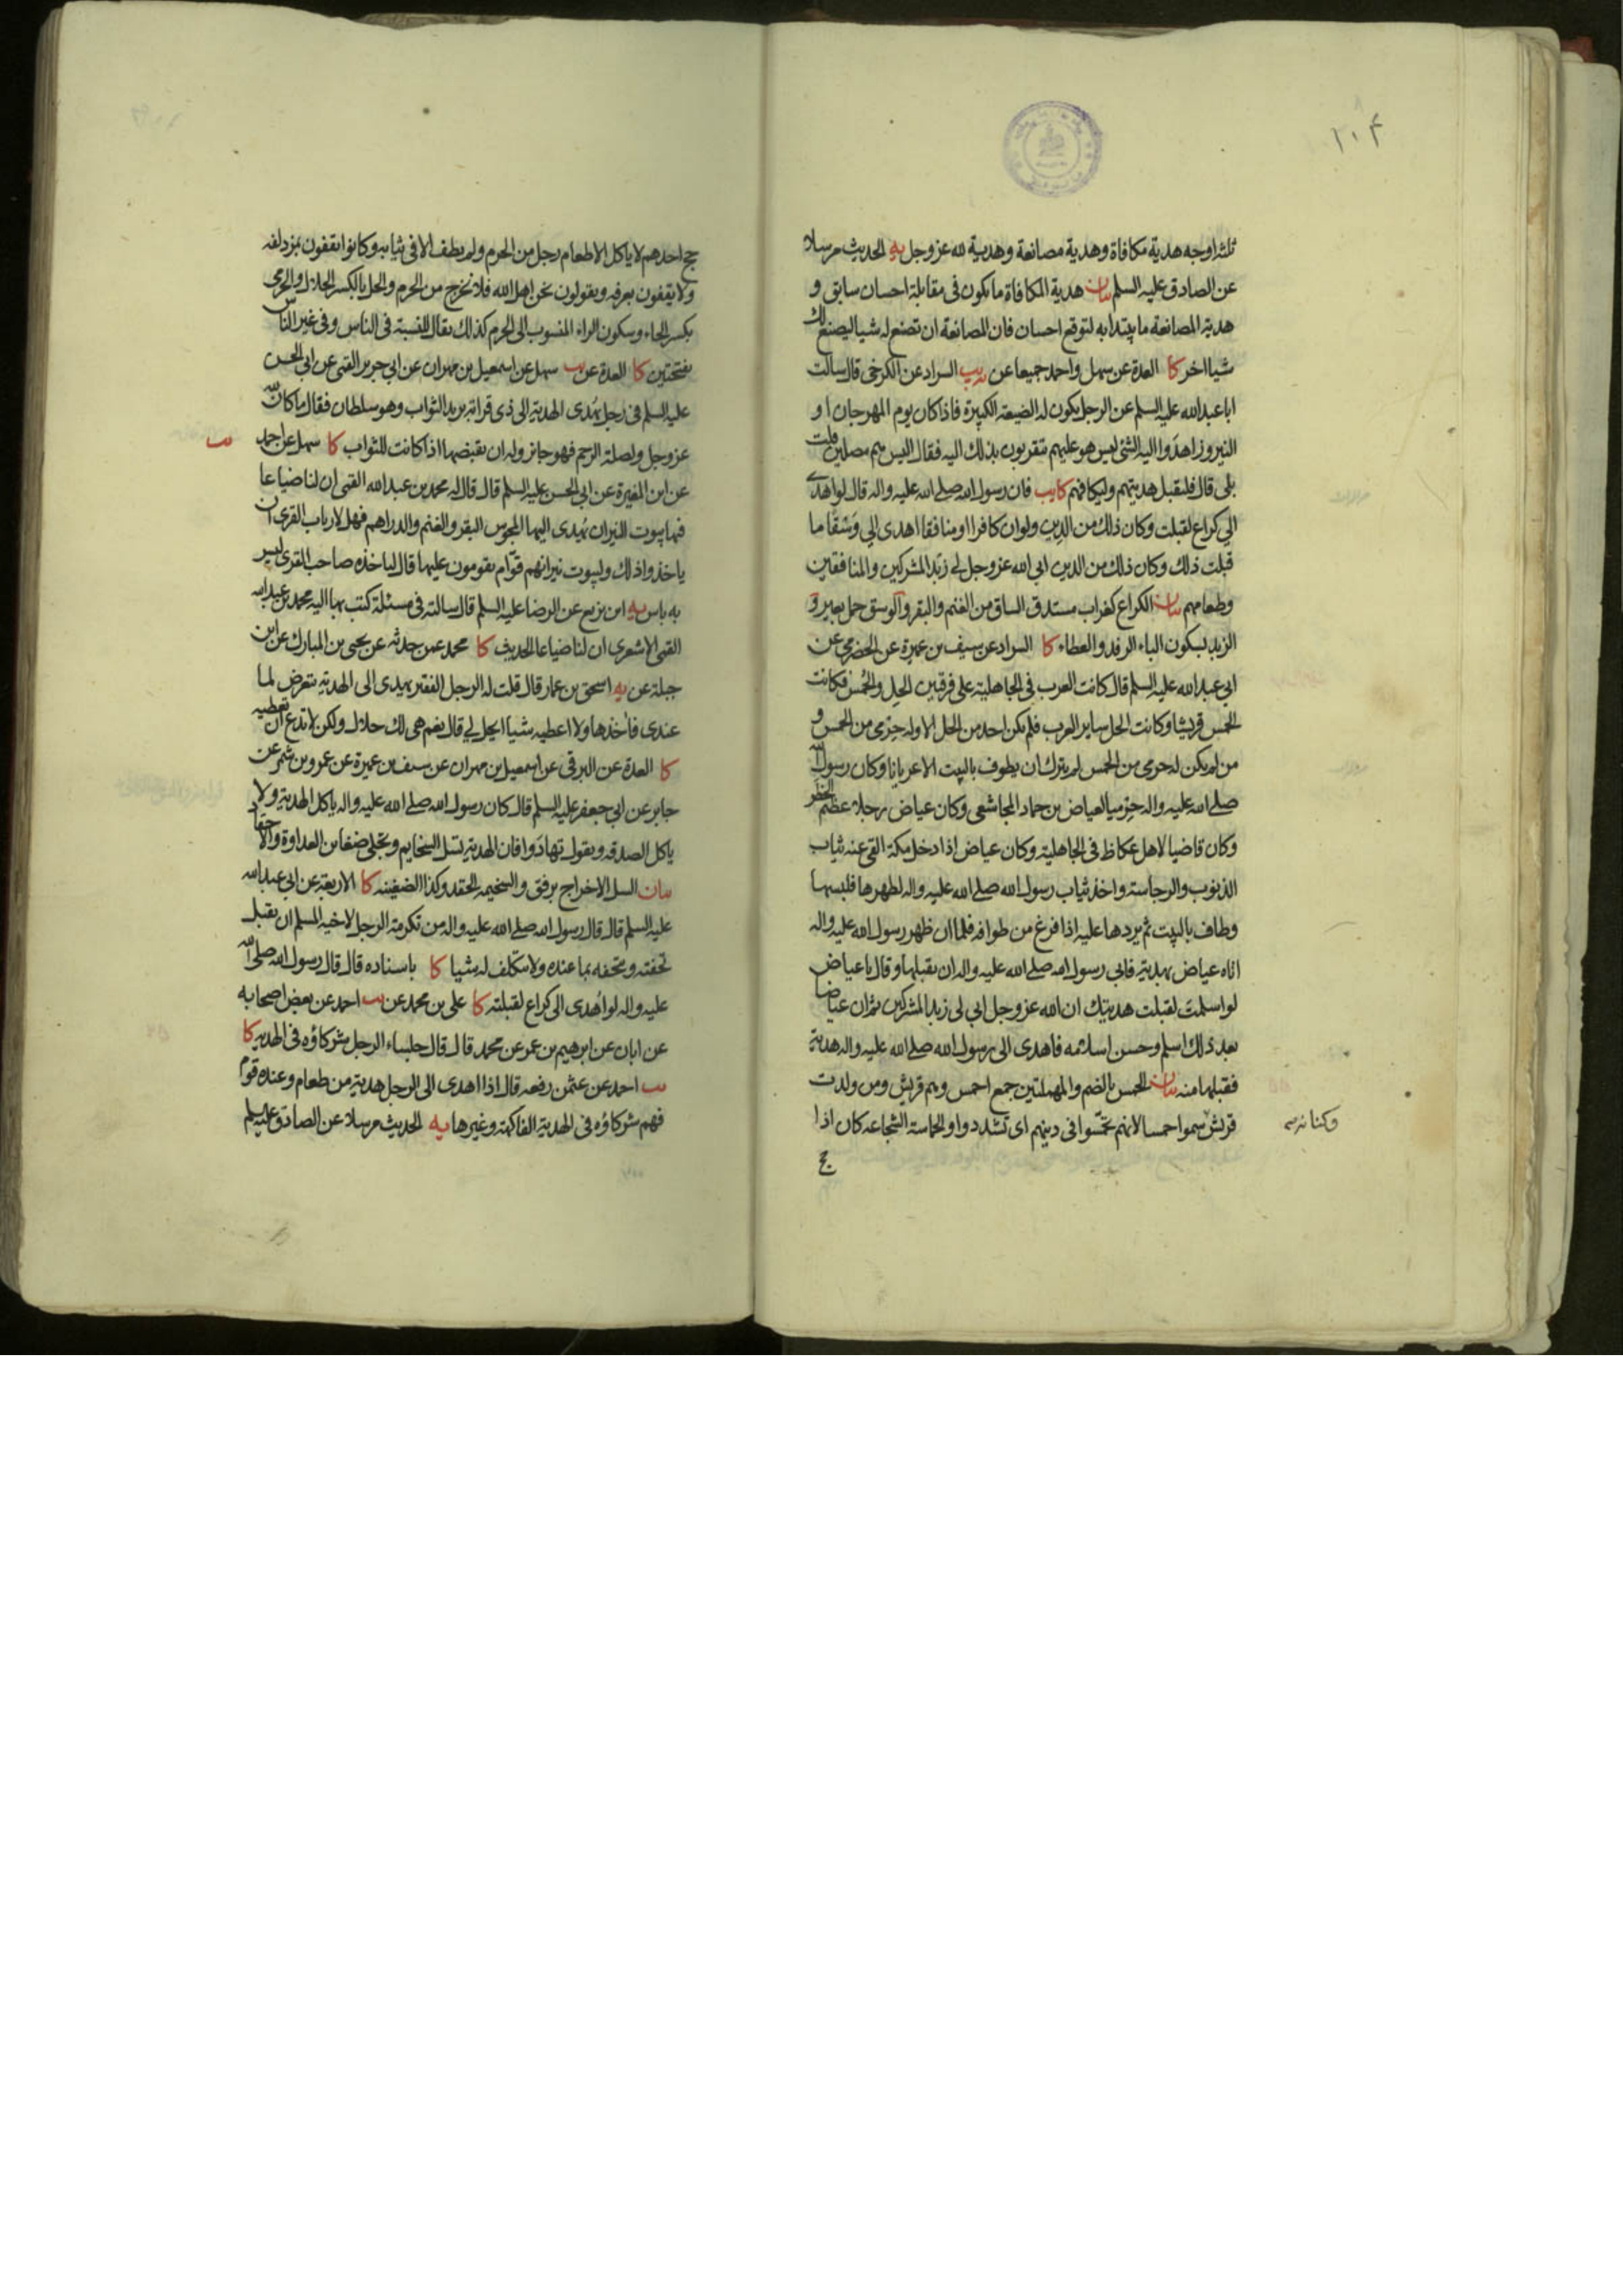 ١٠٤
ثلثة اوجه هدية مكافاة وهدية مصانعة وهدية لله عز وجل يه الحديث مرسلا
عن الصادق عليه السلم بيان هدية المكافاة ما يكون فى مقابلة احسان سابق و
هدية المصانعة ما يبتدا به لتوقع احسان فان المصانعة ان تصنع له شيا ليصنع لك
شيا اخر كا العدة عن سهل واحمد جميعا عن يب السراد عن الكرخى قال سالت
ابا عبد الله عليه السلم عن الرجل يكون له الضيعة الكبيرة فاذا كان يوم المهرجان او
النيروز اهدوا اليه الشئ ليس هو عليهم يتقربون بذلك اليه فقال اليس هم مصلين قلت
بلى قال فليقبل هديتهم وليكافهم كا يب فان رسول الله صلى الله عليه واله قال لو اهدى
الي كراع لقبلت وكان ذلك من الدين ولو ان كافرا او منافقا اهدى الي وسقا ما
قبلت ذلك وكان ذلك من الدين ابى الله عز وجل لي زبد المشركين والمنافقين
وطعامهم بيان الكراع كغراب مستدق الساق من الغنم والبقر والوسق حمل بعير و
الزبد بسكون الباء الرفد والعطاء كا السراد عن سيف بن عميرة عن الحضرمي عن
ابي عبد الله عليه السلم قال كانت العرب فى الجاهلية على فرقتين الحل والحمس فكانت
الحمس قريشا وكانت الحل ساير العرب فلم يكن احد من الحل الا وله حرمى من الحمس و
من لم يكن له حرمى من الحمس لم يترك ان يطوف بالبيت الا عريانا وكان رسول الله
صلى الله عليه واله حرميا لعياض بن حماد المجاشعى وكان عياض رجلا عظيم الخطر
وكان قاضيا لاهل عكاظ فى الجاهلية وكان عياض اذا دخل مكة القى عنه ثياب
الذنوب والرجاسة واخذ ثياب رسول الله صلى الله عليه واله لطهرها فلبسها
وطاف بالبيت ثم يردها عليه اذا فرغ من طوافه فلما ان ظهر رسول الله عليه واله
اتاه عياض بهدية فابى رسول الله صلى الله عليه واله ان يقبلها وقال يا عياض
لو اسلمت لقبلت هديتك ان الله عز وجل ابى لى زبد المشركين ثم ان عياضا
بعد ذلك اسلم وحسن اسلامه فاهدى الى رسول الله صلى الله عليه واله هدية
فقبلها منه بيان الحمس بالضم والمهملتين جمع احمس وهم قريش ومن ولدت
قريش سموا حمسا لانهم تحمسوا فى دينهم اى تشددوا والحماسة الشجاعة كان اذا
وكنانة
حج
حج احدهم لا ياكل الا طعام رجل من الحرم ولم يطف الا فى ثيابه وكانوا يقفون بمزدلفة
ولا يقفون بعرفة ويقولون نحن اهل الله فلا نخرج من الحرم والحل بالكسر الحلال والحرمى
بكسر الحاء وسكون الراء المنسوب الى الحرم كذلك يقال النسبة فى الناس وفى غير الناس
بفتحتين كا العدة عن يب سهل عن اسمعيل بن مهران عن ابي جرير القمى عن ابي الحسن
عليه السلم فى رجل يهدى الهدية الى ذى قرابته يريد الثواب وهو سلطان فقال ما كان لله
عز وجل ولصلة الرحم فهو جايز وله ان يقبضها اذا كانت للثواب كا سهل عن احمد
يب
عن ابن المغيرة عن ابي الحسن عليه السلم قال قال له محمد بن عبد الله القمى ان لنا ضياعا
فيها بيوت النيران يهدى اليها المجوس البقر والغنم والدراهم فهل لارباب القرى ان
ياخذوا ذلك ولبيوت نيرانهم قوام يقومون عليها قال لياخذه صاحب القرى ليس
به باس يه ابن بزيع عن الرضا عليه السلم قال سالته فى مسئلة كتب بها اليه محمد بن عبد الله
القمى الاشعرى ان لنا ضياعا الحديث كا محمد عمن حدثه عن يحيى بن المبارك عن ابن
جبلة عن يه اسحق بن عمار قال قلت له الرجل الفقير يهدى الى الهدية يتعرض لما
عندى فاخذها ولا اعطيه شيا ايحل لي قال نعم هى لك حلال ولكن لا تدع ان تعطيه
كا العدة عن البرقى عن اسمعيل بن مهران عن سيف بن عميرة عن عمرو بن شمر عن
جابر عن ابي جعفر عليه السلم قال كان رسول الله صلى الله عليه واله ياكل الهدية ولا
ياكل الصدقة ويقول تهادوا فان الهدية تسل السخايم وتجلى ضغاين العداوة والاحقاد
بيان السل الاخراج برفق والسخيمة الحقد وكذا الضغينة كا الاربعة عن ابي عبد الله
عليه السلم قال قال رسول الله صلى الله عليه واله من تكرمة الرجل لاخيه المسلم ان يقبل
تحفته ويتحفه بما عنده ولا يتكلف له شيا كا باسناده قال قال رسول الله صلى الله
عليه واله لو اهدى الى كراع لقبلته كا على بن محمد عن يب احمد عن بعض اصحابه
عن ابان عن ابرهيم بن عمر عن محمد قال قال جلساء الرجل شركاؤه فى الهدية كا
يب احمد عن عثمن رفعه قال اذا اهدى الى الرجل هدية من طعام وعنده قوم
فهم شركاؤه فى الهدية الفاكهة وغيرها يه الحديث مرسلا عن الصادق عليه السلم